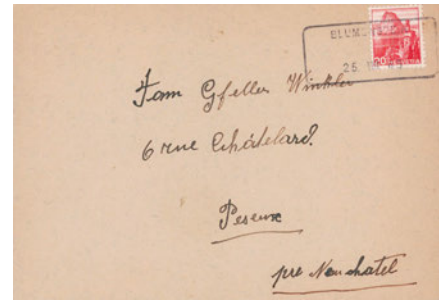 BLUM
25.
20
HELVETIA
Fam Gfeller Winkler
6 rue Châtelard.
Peseux
pre Neuchatel